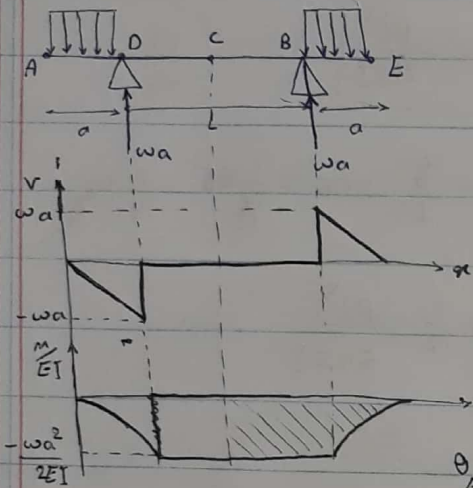 A D C B E
a L a
wa wa
V
wa
x
-wa
M/EI
-wa²/2EI
θ